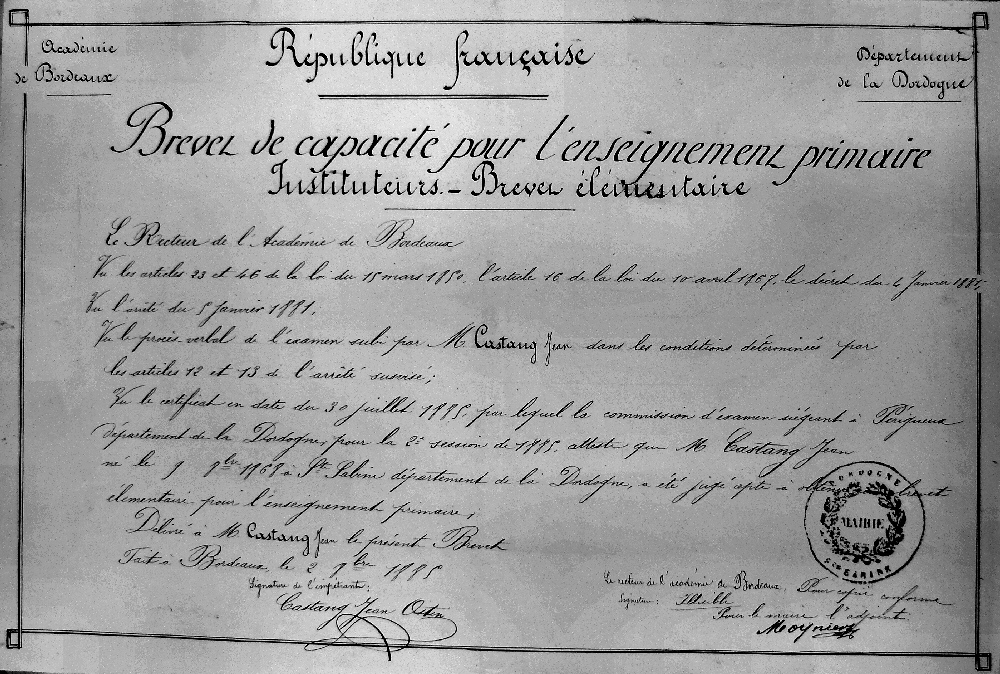 Académie
de Bordeaux
République française
Département
de la Dordogne
Brevet de capacité pour l'enseignement primaire
Instituteurs. - Brevet élémentaire
Le Recteur de l'Académie de Bordeaux
Vu les articles 23 et 46 de la loi du 15 mars 1850, l'article 16 de la loi du 10 avril 1867, le décret du 4 Janvier 1881,
Vu l'arrêté du 5 Janvier 1881,
Vu le procès verbal de l'examen subi par M Castang Jean dans les conditions déterminées par
les articles 12 et 13 de l'arrêté susvisé;
Vu le certificat en date du 30 juillet 1885, par lequel la commission d'examen siégeant à Périgueux
département de la Dordogne, pour la 2e session de 1885, atteste que M Castang Jean
né le 9 9bre 1868 à Ste Sabine département de la Dordogne, a été jugé apte à brevet
élémentaire pour l'enseignement primaire;
Délivré à M Castang Jean le présent Brevet
Fait à Bordeaux le 2 9bre 1885
Signature de l'impétrant:
Castang Jean
Le recteur de l'académie de Bordeaux,
Signature: Illisible
Pour copie conforme
Pour le maire l'adjoint
DORDOGNE
MAIRIE
Ste SABINE